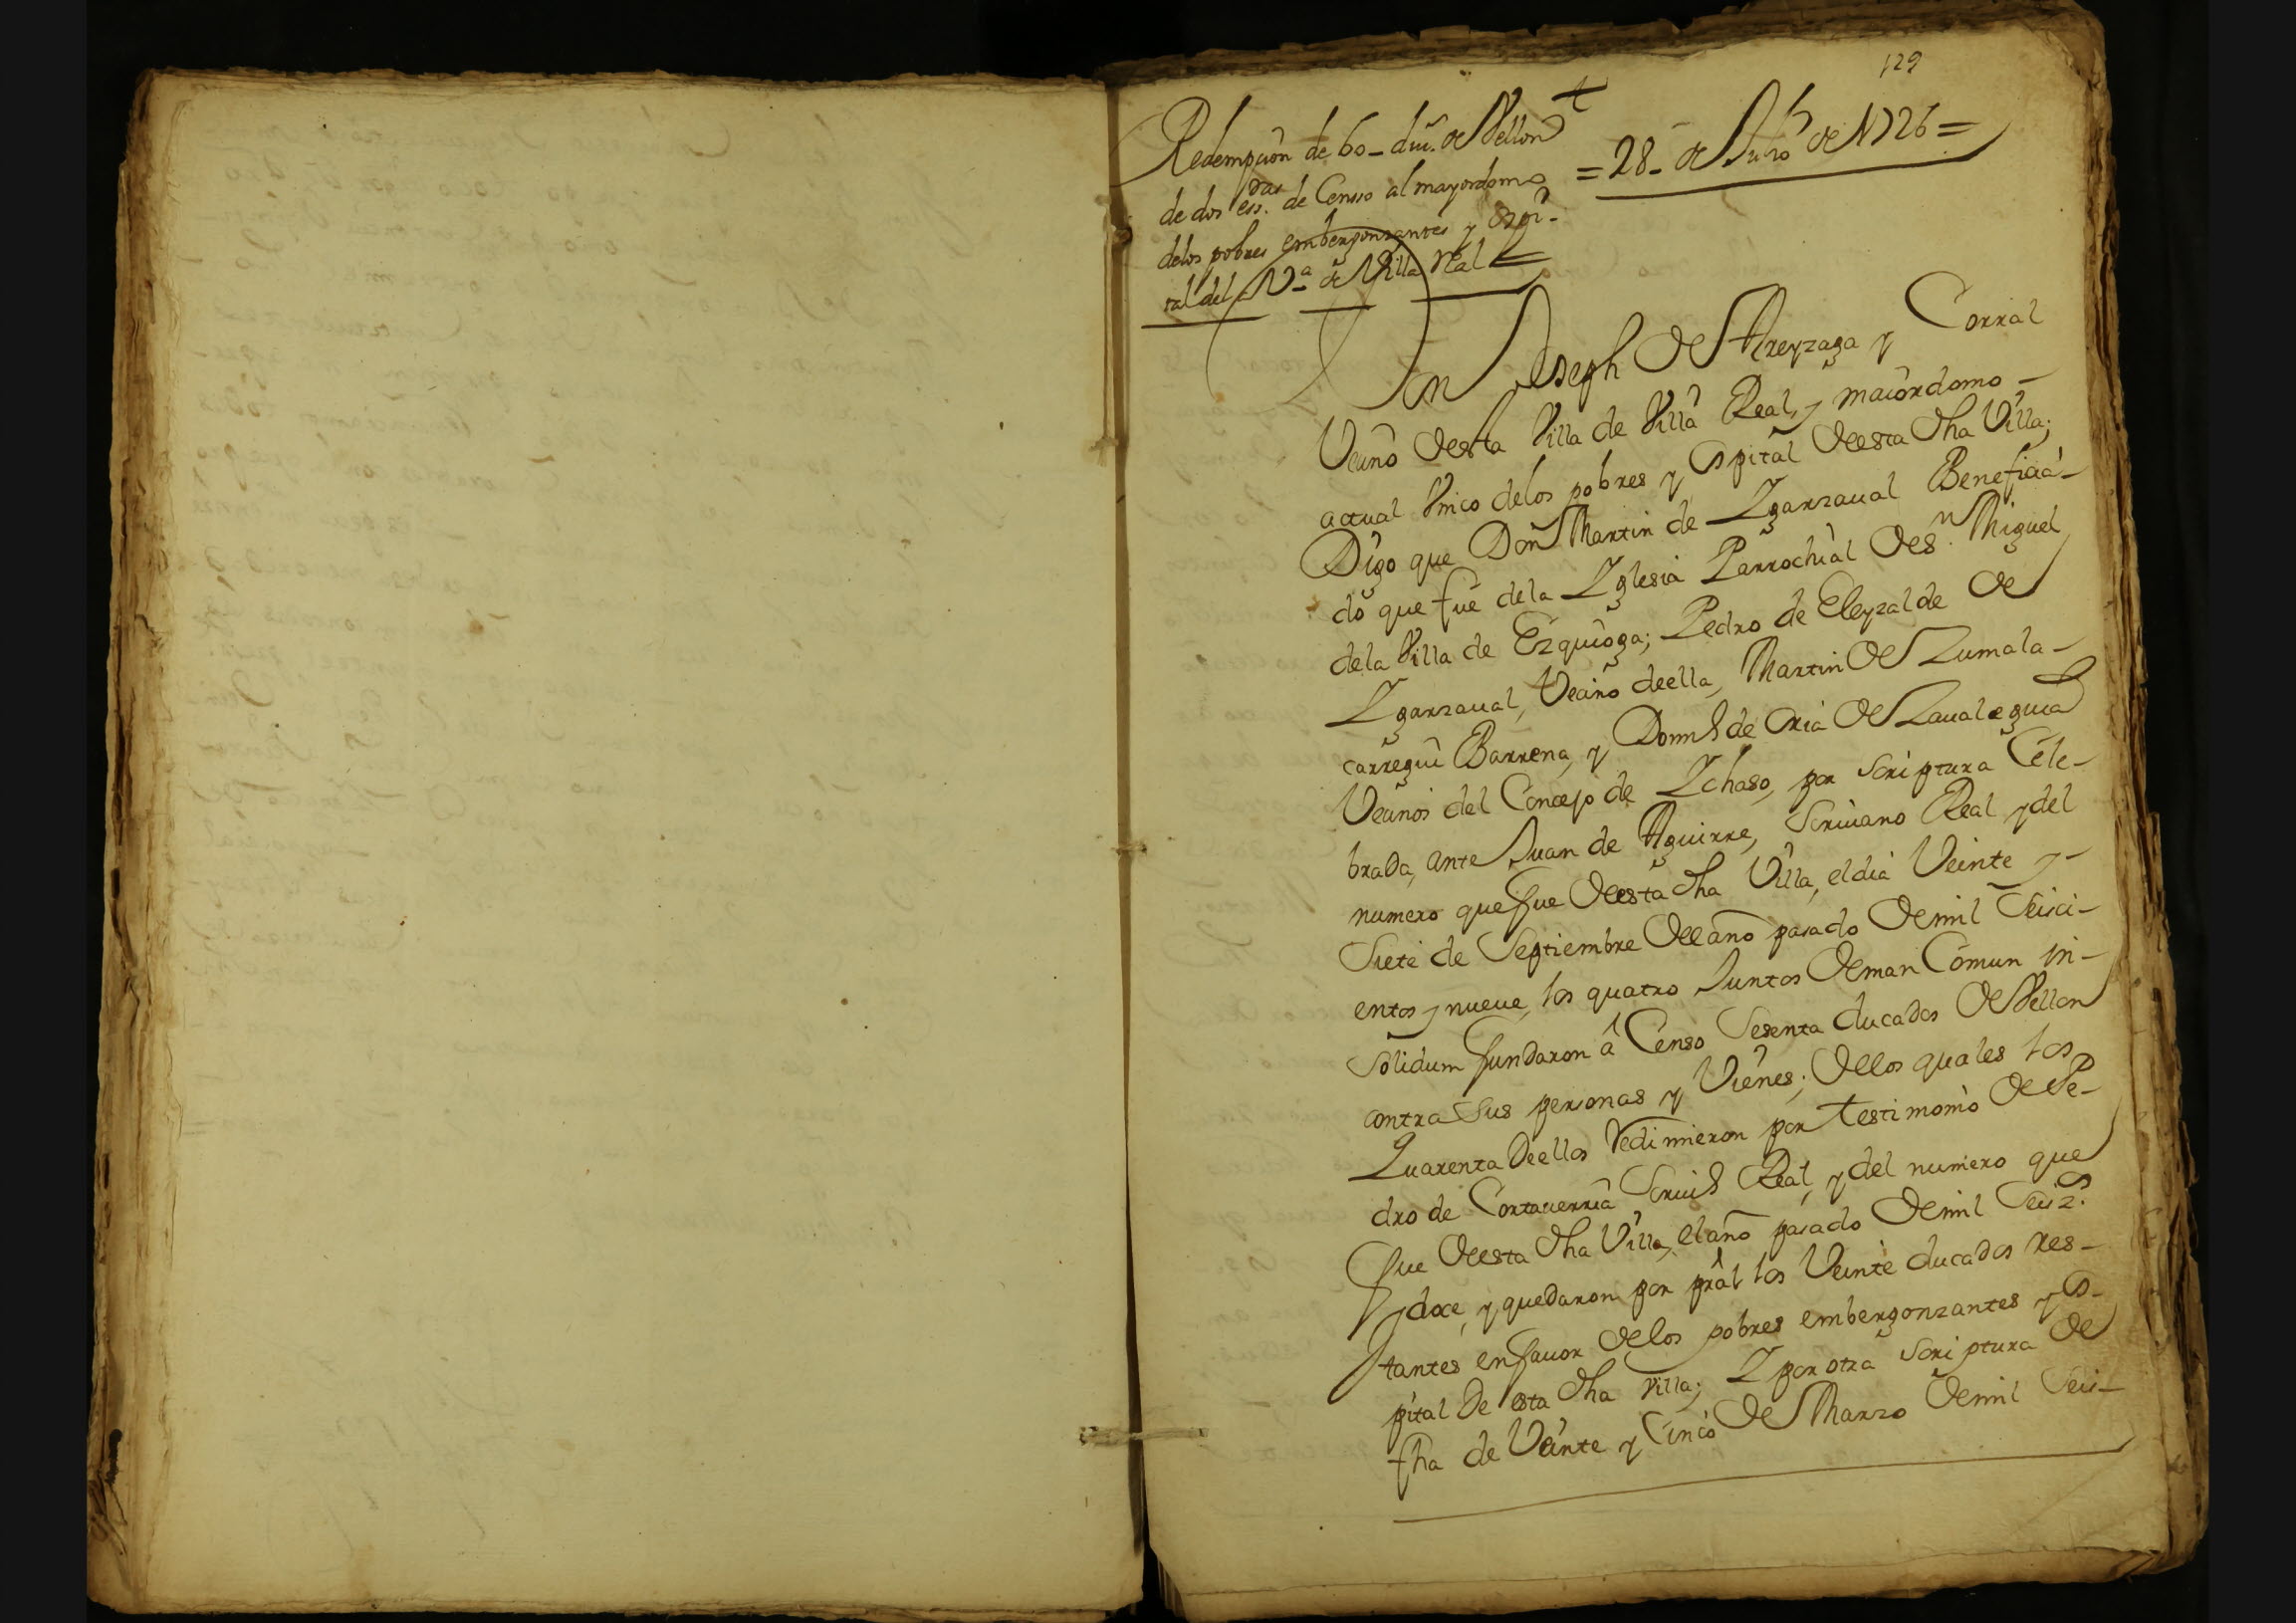 129
Redempcion de 60_ duc.s de Vellon
de dos ess.das de Censso al mayordomo
delos pobres embergonzantes y ospi-
tal del N.a de Villa Real =
= 28_ de Julio de 1726 =
Don Joseph de Areyzaga y Corral
Vecino desta Villa de Villa Real, y maiordomo -
actual Unico delos pobres y ospital deesta dha Villa;
Digo que Don Martin de Ygarzaual Beneficia-
do que fue dela Yglesia Parrochial de S.n Miguel
dela Villa de Ezquioga; Pedro de Eleyzalde de
Ygarzaual, Vecino deella, Martin de Zumala-
carregui Barrena, y Dom.o de Oria de Zaualegui
Vecinos del Concejo de Ychaso, por scriptura Cele-
brada, ante Juan de Aguirre, Scriuano Real y del
numero que fue deesta dha Villa, el dia Veinte y -
Siete de Septiembre del año pasado de mil Seisci-
entos y nueue, los quatro Juntos de man Comun in-
solidum fundaron â Censo Sesenta ducados de Vellon
contra sus personas y Vienes; de los quales los
Quarenta deellos Redimieron por testimonio de Pe-
dro de Cortauerria Scriu.o Real, y del numero que
fue deesta dha Villa, el año pasado de mil Seiz.s
y doce, y quedaron por prâl los Veinte ducados res-
tantes en fauor de los pobres embergonzantes y os-
pital de esta dha Villa; Y por otra scriptura de
fha de Veinte y Cinco de Marzo de mil Seis-